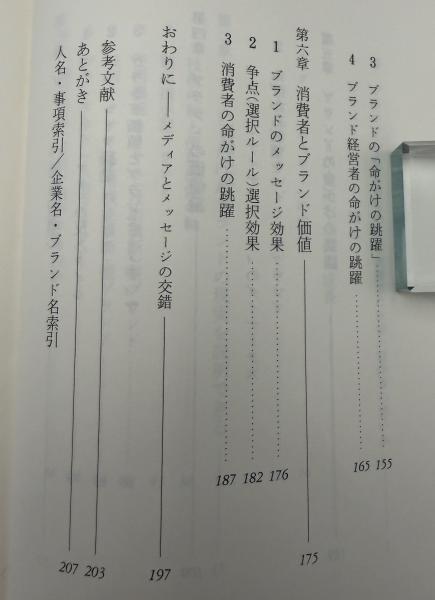 3 ブランドの「命がけの跳躍」 155
4 ブランド経営者の命がけの跳躍 165
第六章 消費者とブランド価値 175
1 ブランドのメッセージ効果 176
2 争点(選択ルール)選択効果 182
3 消費者の命がけの跳躍 187
おわりに——メディアとメッセージの交錯 197
参考文献 203
あとがき 207
人名・事項索引/企業名・ブランド名索引